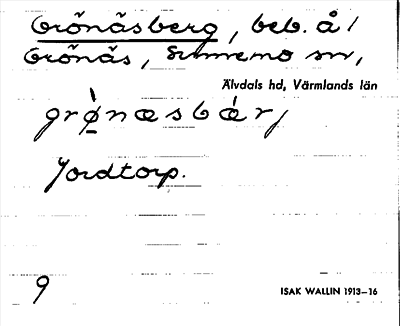 Grönäsberg, beb. å
Grönäs, Sunnemo sn,
Älvdals hd, Värmlands län
grø̀næsbǽrj
Jordtorp.
9
ISAK WALLIN 1913–16